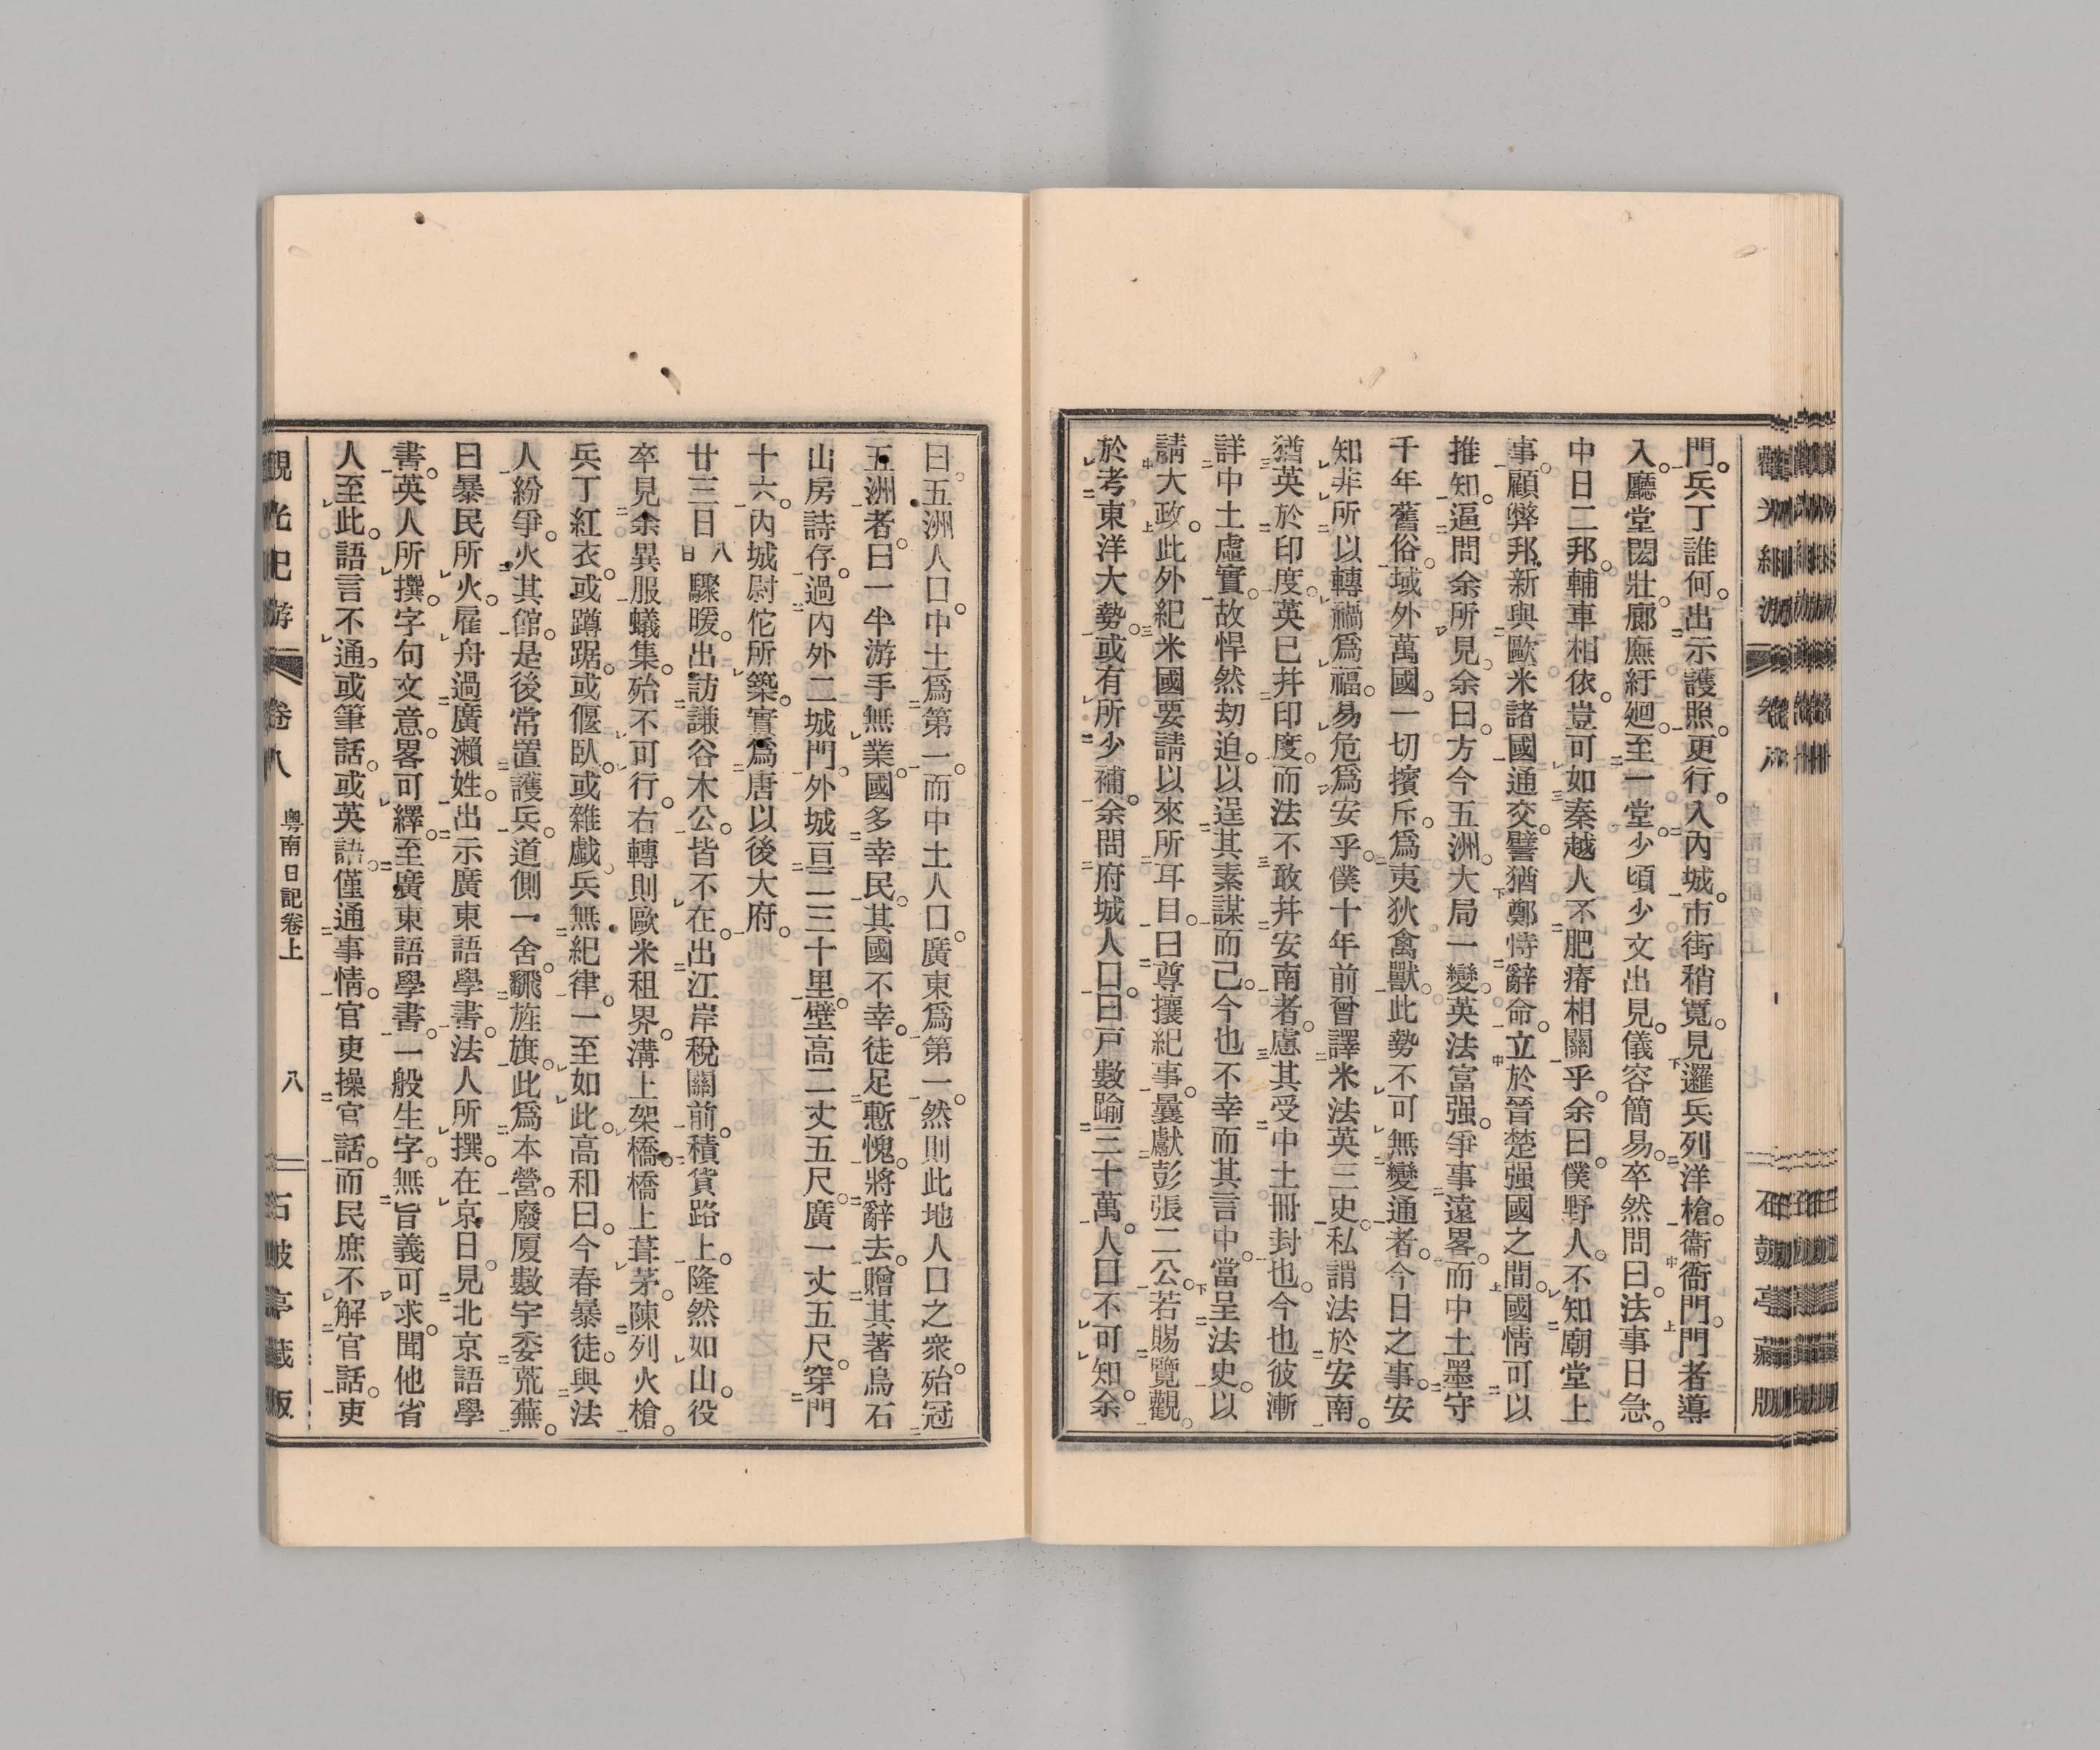 門。兵丁誰何。出示護照。更行。入內城。市街稍寬。見邏兵列洋槍。衞衙門。門者導
入。廳堂閎壯。廊廡紆廻。至一堂。少頃少文出見。儀容簡易。卒然問曰。法事日急。
中日二邦。輔車相依。豈可如秦越人不肥瘠相關乎。余曰。僕野人。不知廟堂上
事。顧弊邦新與歐米諸國通交。譬猶鄭恃辭命。立於晉楚强國之間。國情可以
推知。逼問余所見。余曰。方今五洲。大局一變。英法富强。爭事遠畧。而中土墨守
千年舊俗。域外萬國。一切擯斥。爲夷狄禽獸。此勢不可無變通者。今日之事。安
知非所以轉禍爲福。易危爲安乎。僕十年前曾譯米法英三史。私謂法於安南。
猶英於印度。英已并印度。而法不敢并安南者。慮其受中土冊封也。今也彼漸
詳中土虛實。故悍然劫迫。以逞其素謀而已。今也不幸而其言中。當呈法史。以
請大政。此外紀米國要請以來所耳目。曰尊攘紀事。曩獻彭張二公。若賜覽觀。
於考東洋大勢。或有所少補。余問府城人口。曰戶數踰三十萬。人口不可知。余
曰。五洲人口。中土爲第一。而中土人口。廣東爲第一。然則此地人口之衆。殆冠
五洲者。曰一半游手無業。國多幸民。其國不幸。徒足慙愧。將辭去。贈其著烏石
山房詩存。過內外二城門。外城亘二三十里。壁高二丈五尺。廣一丈五尺。穿門
十六。內城尉佗所築。實爲唐以後大府。
廿三日八日驟暖。出訪謙谷木公。皆不在。出江岸稅關前。積貨路上。隆然如山。役
卒見余異服蟻集。殆不可行。右轉則歐米租界。溝上架橋。橋上葺茅。陳列火槍。
兵丁紅衣。或蹲踞。或偃臥。或雜戲。兵無紀律。一至如此。高和曰。今春暴徒。與法
人紛爭。火其館。是後常置護兵。道側一舍。飜旌旗。此爲本營。廢厦數宇委荒蕪。
曰暴民所火。雇舟過廣瀨姓。出示廣東語學書。法人所撰。在京日。見北京語學
書。英人所撰。字句文意。畧可繹。至廣東語學書。一般生字。無旨義可求。聞他省
人至此。語言不通。或筆話。或英語。僅通事情。官吏操官話。而民庶不解官話。吏
觀光紀游 卷八 粤南日記卷上 八 石鼓亭藏版